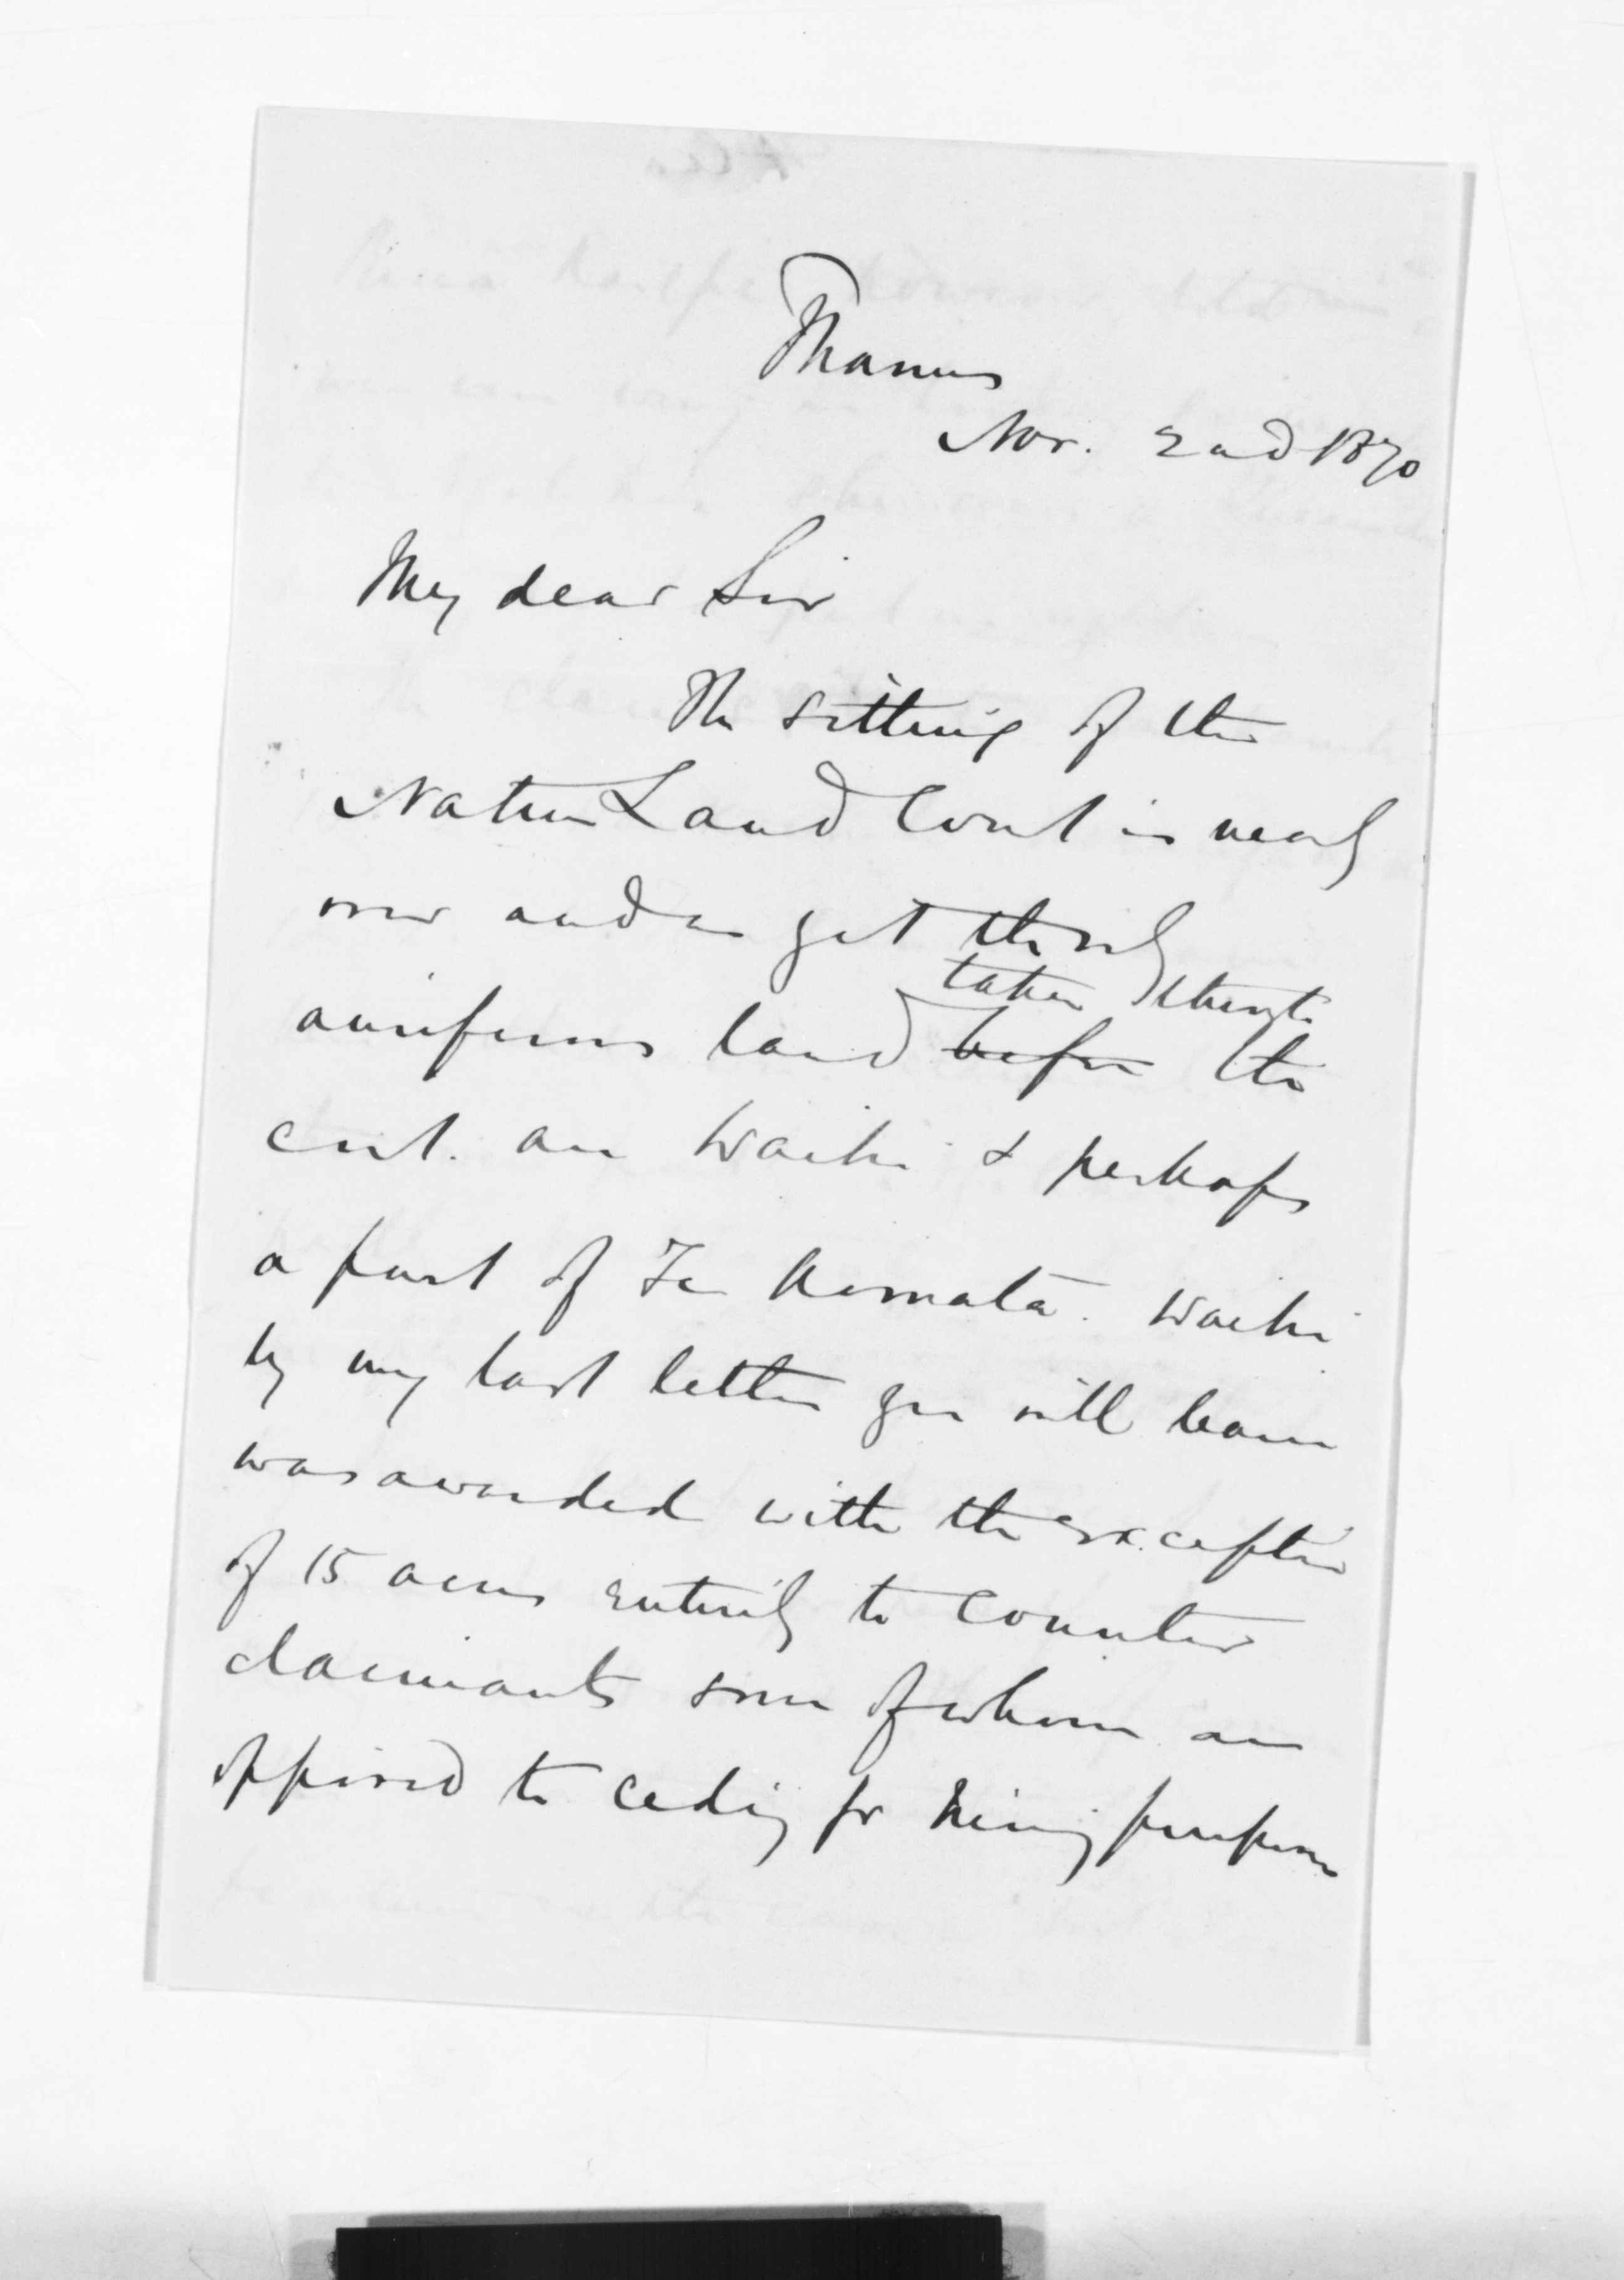 Thames
Nov. 2nd 1870
My dear Sir
The sitting of the
Native Land Court is nearly
over and as yet the only
taken through
auriferous land before the
court are Waihi & perhaps
a part of Te Komata. Waihi
by my last letter you will learn
was awarded with the exception
of 15 acres entirely to counter
claimants some of whom are
opposed to ceding for mining purposes